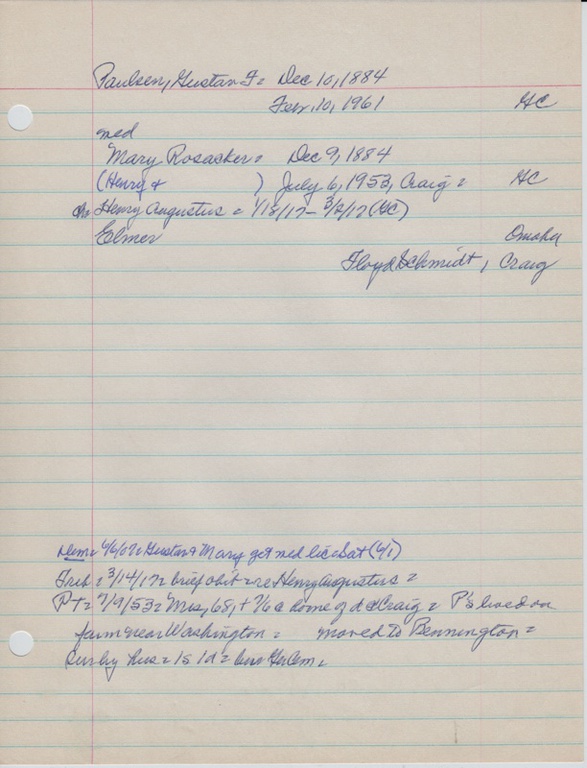 Paulsen, Gustav F = Dec 10, 1884
Feb. 10, 1961 GC
med
Mary Rosacker = Dec 9, 1884
(Henry + ) July 6, 1953, Craig = GC
ch. Henry Augustus = 1/18/17 - 3/2/17 (GC)
Elmer Omaha
Floyd Schmidt, Craig
Dem = 6/6/07 = Gustav + Mary get med lic Sat (6/1)
Trib = 3/14/17 = brief obit = re Henry Augustus =
PT = 7/9/53 = Mrs, 68, + 7/6 @ home of d @ Craig = P's lived on
farm near Washington = moved to Bennington =
surv by hus = 1s 1d = bur Ger Cem.